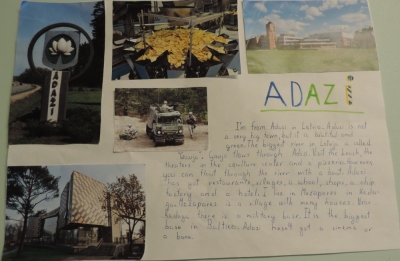 ADAZI
ADAZI
I'm from Adazi in Latvia. Adazi is not
a very big town, but it is beautiful and
green. The biggest river in Latvia is called
Gauja. Gauja flows through Adazi. But the beach, the
theatre in the culture center and a
you can float through the river with a boat. Adazi
has got restaurants, villages, a school, shops, a chip
factory and a hotel. I live in
is a village with many houses. Near
there is a military base. It is the biggest
base in Baltics. Adazi hasn't got a cinema or
a bank.